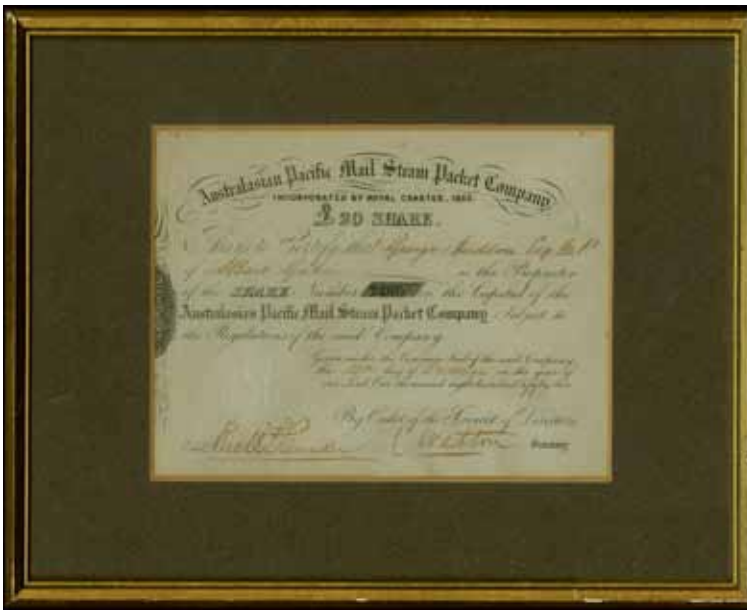 Australasian Pacific Mail Steam Packet Company
INCORPORATED BY ROYAL CHARTER, 1852
£20 SHARE.
This is to Certify that George Hudson Esq M.P.
of Albert Gate is the Proprietor
of the SHARE Number in the Capital of the
Australasian Pacific Mail Steam Packet Company Subject to
the Regulations of the said Company
Given under the Common Seal of the said Company,
the day of in the year of
our Lord One thousand eight hundred fifty two
By Order of the Court of Directors
Secretary